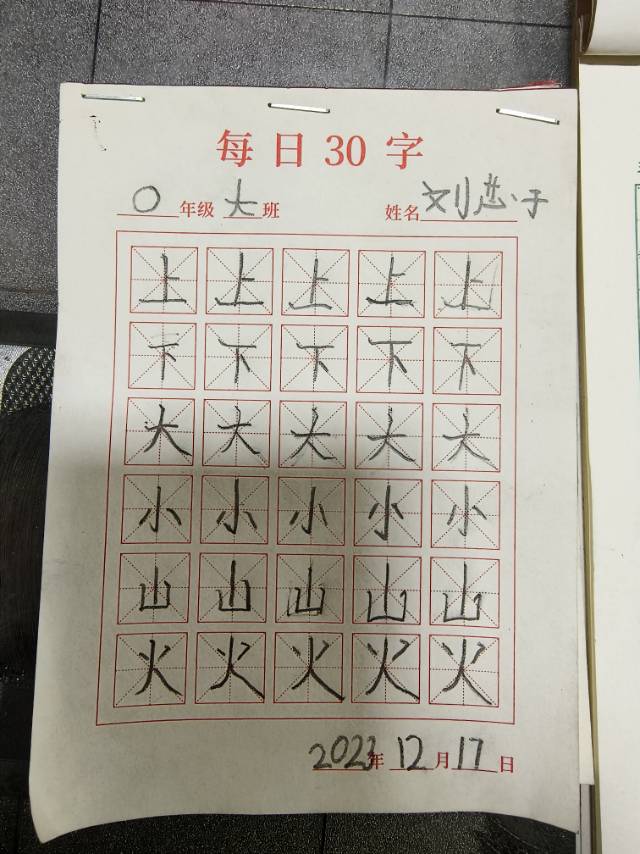 每日30字
0年级大班 姓名刘芯子
上上上上上
下下下下下
大大大大大
小小小小小
山山山山山
火火火火火
2023年12月17日